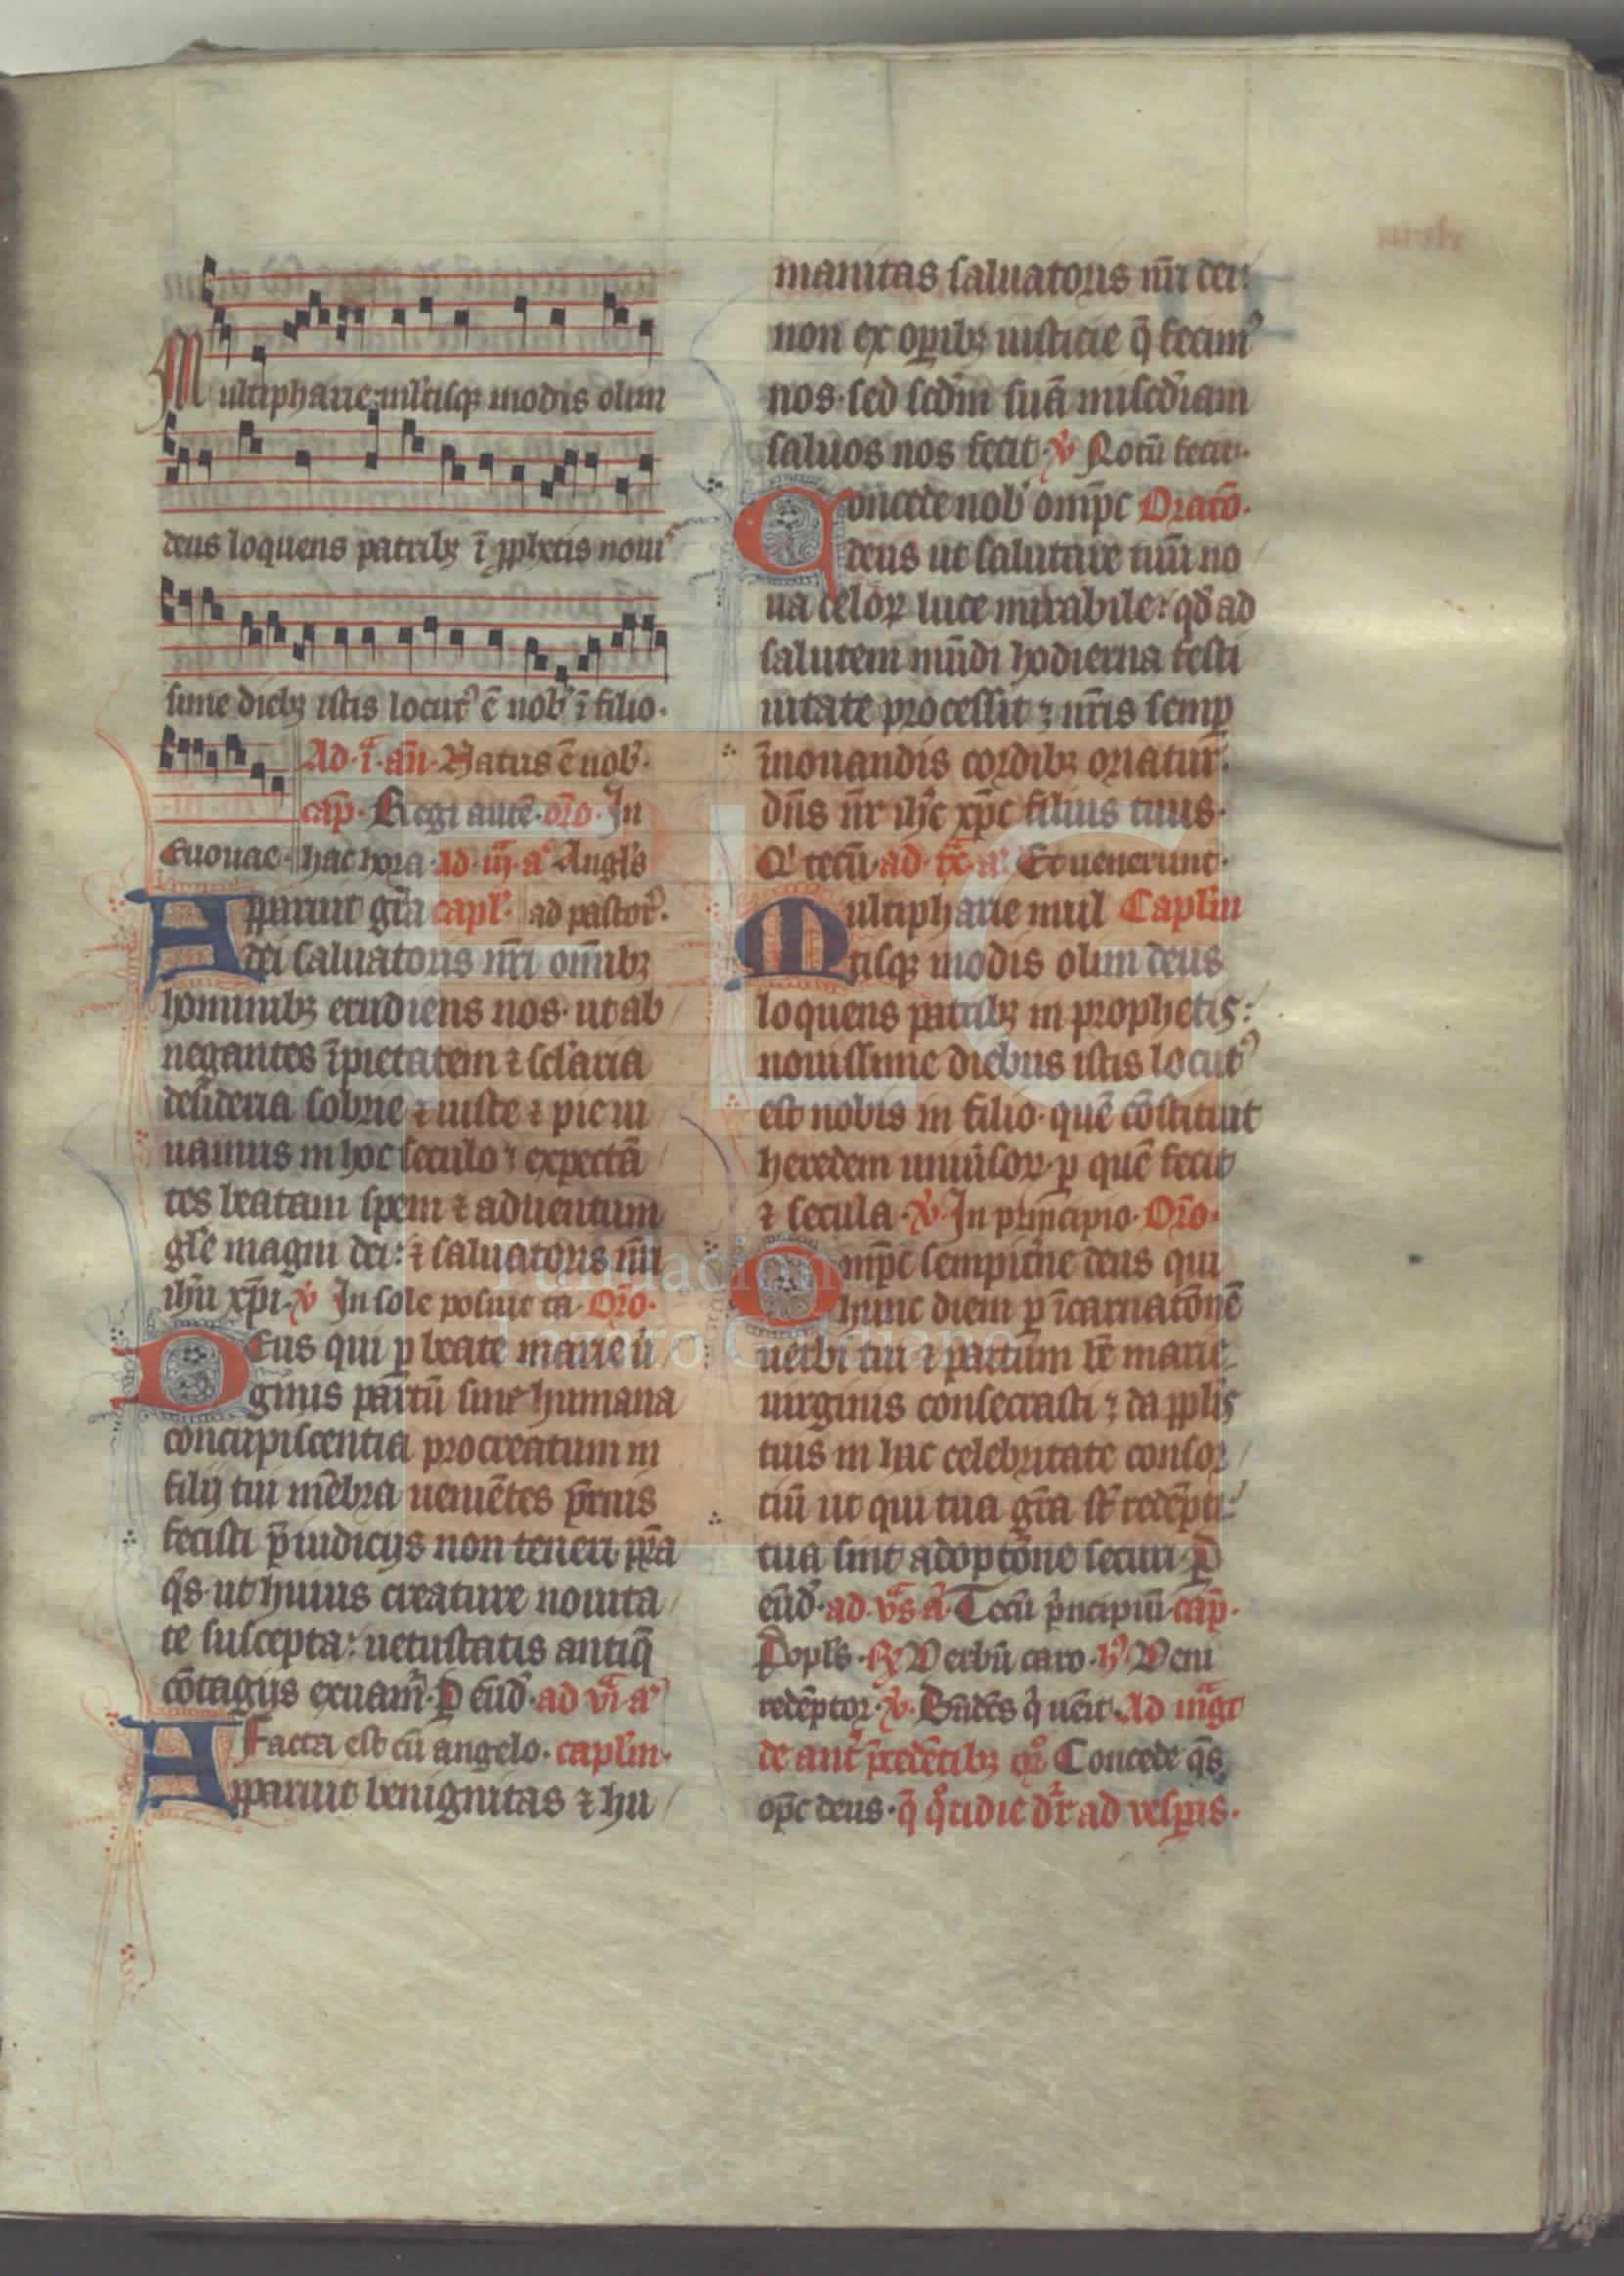 Multipharie multisqꝫ modis olim
deus loquens patribꝫ ī ꝓphetis noui
sime diebꝫ istis locutꝰ ē nobꝭ ī filio.
Ad .i. an̄. Natus ē nob̓.
cap̄. Regi autē. or̄o. In
Euouae. hac hora. ad .iii. a᷎ Angl̓s
Apparuit gr̄a capl̓. ad pastor̓.
dei saluatoris nr̄i om̄ibꝫ
hominibꝫ erudiens nos. ut ab
negantes īpietatem ⁊ sc̄laria
desideria sobrie ⁊ iuste ⁊ pie ui
uamus in hoc seculo ⁊ expectā
tes beatam spem ⁊ aduentum
gl̄e magni dei: ⁊ saluatoris nr̄i
ih̄u xp̄i. ℣ In sole posuit ta. Or̄o.
Deus qui ꝑ beate marie ui
ginis partū sine humana
concupiscentia procreatum in
filij tui mēbra ueniētes pr̄nis
fecisti p̄iudicijs non teneri pr̄a
q̄s. ut huius creature nouita
te suscepta: uetustatis antiq̄
cōtagijs exuam̓. P eūd̓. ad vi᷎ a᷎
Facta est cū angelo. capl̓m.
Apparuit benignitas ⁊ hu
manitas saluatoris nr̄i dei:
non ex oꝑibꝫ iusticie q̄ fecimꝰ
nos. sed scdm̄ suā misc̄diam
saluos nos fecit. ℣ Notū fecit.
Concede nob̓ omp̄c Oracō.
deus ut salutare tuū no
ua celoꝝ luce mirabile: qd̓ ad
salutem mūdi hodierna festi
uitate processit ⁊ nr̄is semꝑ
īnouandis cordibꝫ oriatur.
dn̄s nr̄ ih̄c xp̄c filius tuus.
Q' tecū. ad .ix. a᷎ Et uenerunt.
Multipharie mul Capl̓m
tisqꝫ modis olim deus
loquens patribꝫ in prophetis:
nouissime diebus istis locutꝰ
est nobis in filio. quē cōstituit
heredem uniu̓soꝝ. ꝑ quē fecit
⁊ secula. ℣. In principio. Or̄o.
Omp̄c sempit̓ne deus qui
hunc diem ꝑ īcarnatōnē
uerbi tui ⁊ partum bē marie
uirginis consecrasti ⁊ da ppl̓is
tuis in hac celebritate consor
ciū ut qui tua gr̄a st̄ redēpti:
tua sint adoptōne securi. P
eūd̓. ad vs̄ a᷎. Tecū p̓ncipiū. cap̄.
Popl̓s. ℟ Verbū caro. h' Veni
redēptor. ℣. Bn̄dcs q' uēit. Ad mgt̓
de ant̓ p̄cedētibꝫ or̄. Concede q̄s
op̄c deus. q̄ q̊tidie dr̄ ad vesꝑis.
Fundación
Lázaro Galdiano